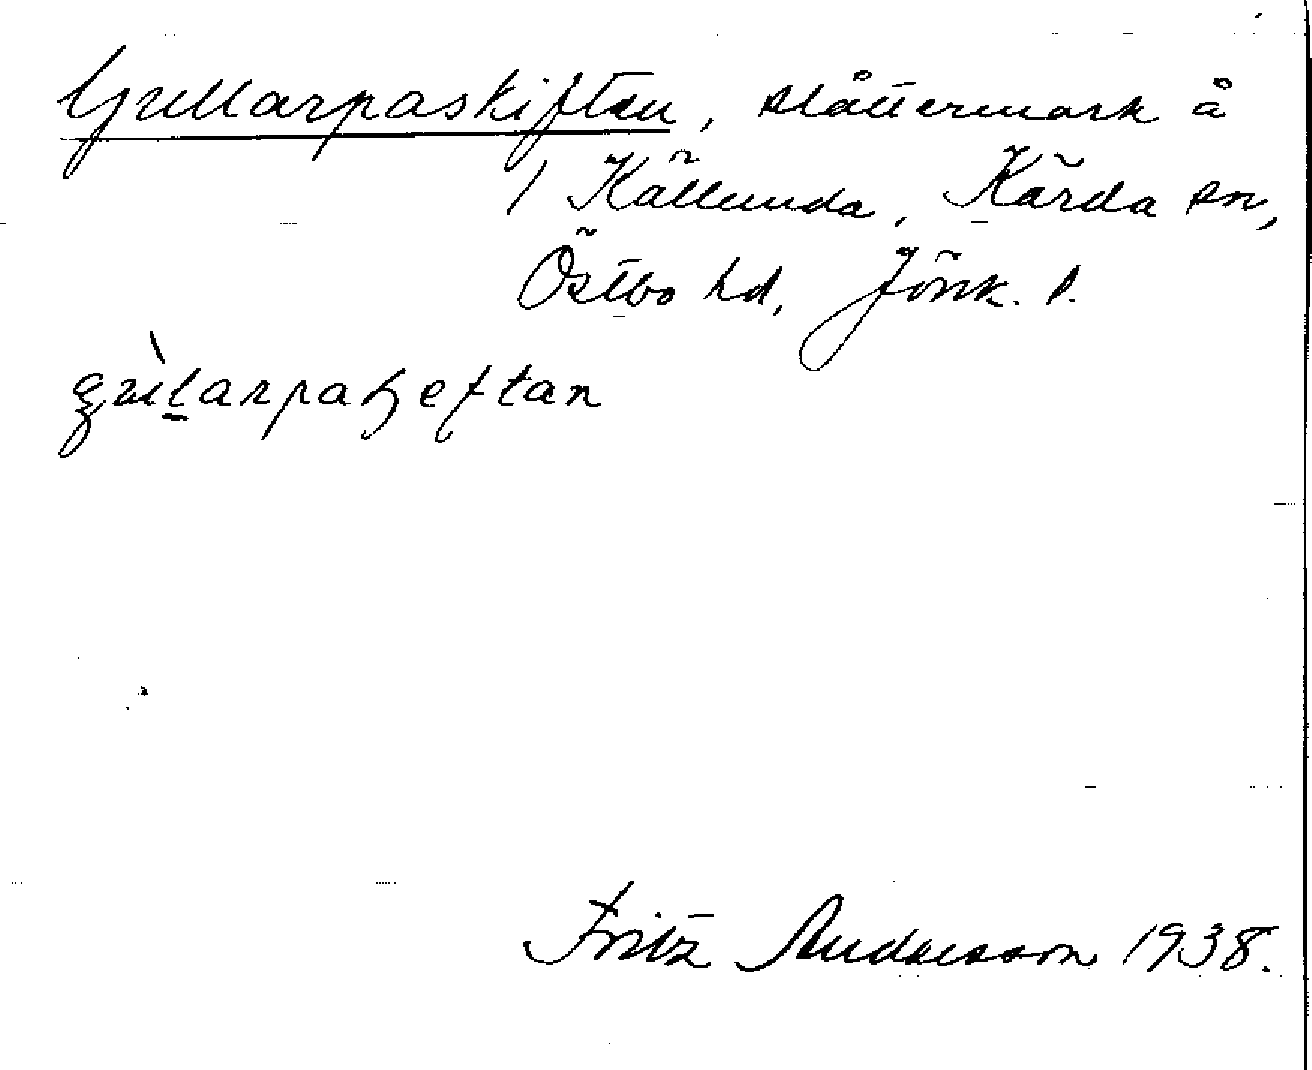 Gullarpaskiften, slåttermark å
1 Källunda, Kärda sn,
Östbo hd, Jönk. l.
Fritz Andersson 1938.